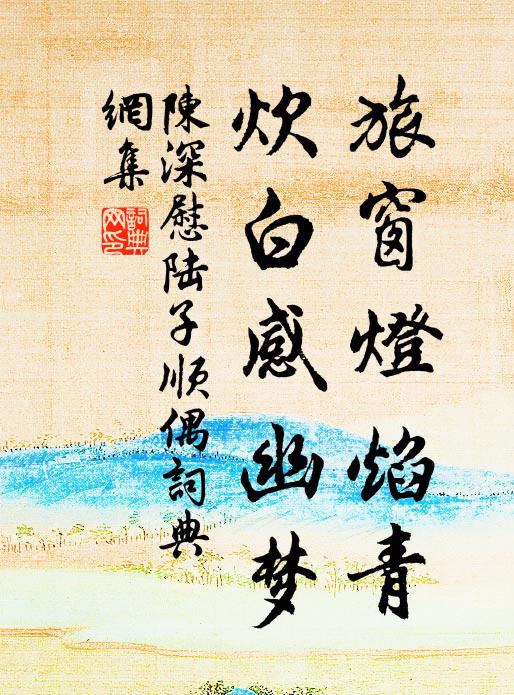 旅窗燈焰青
炊白感幽梦
陳深慰陆子順偶詞典
網集
詞典网印